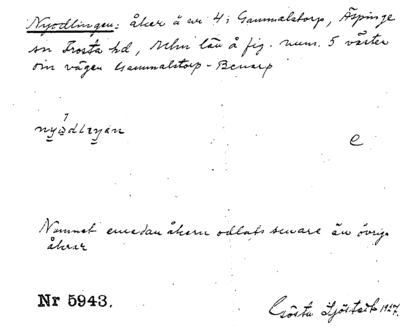 Nyodlingen: åker å nr 4 i Gammalstorp, Äspinge
sn Frosta hd, Mlm län å fig. num. 5 väster
om vägen Gammalstorp-Benarp
nyodlıŋən
e
Namnet emedan åkern odlats senare än övriga
åkrar
Nr 5943.
Gösta Sjöstedt 1927.